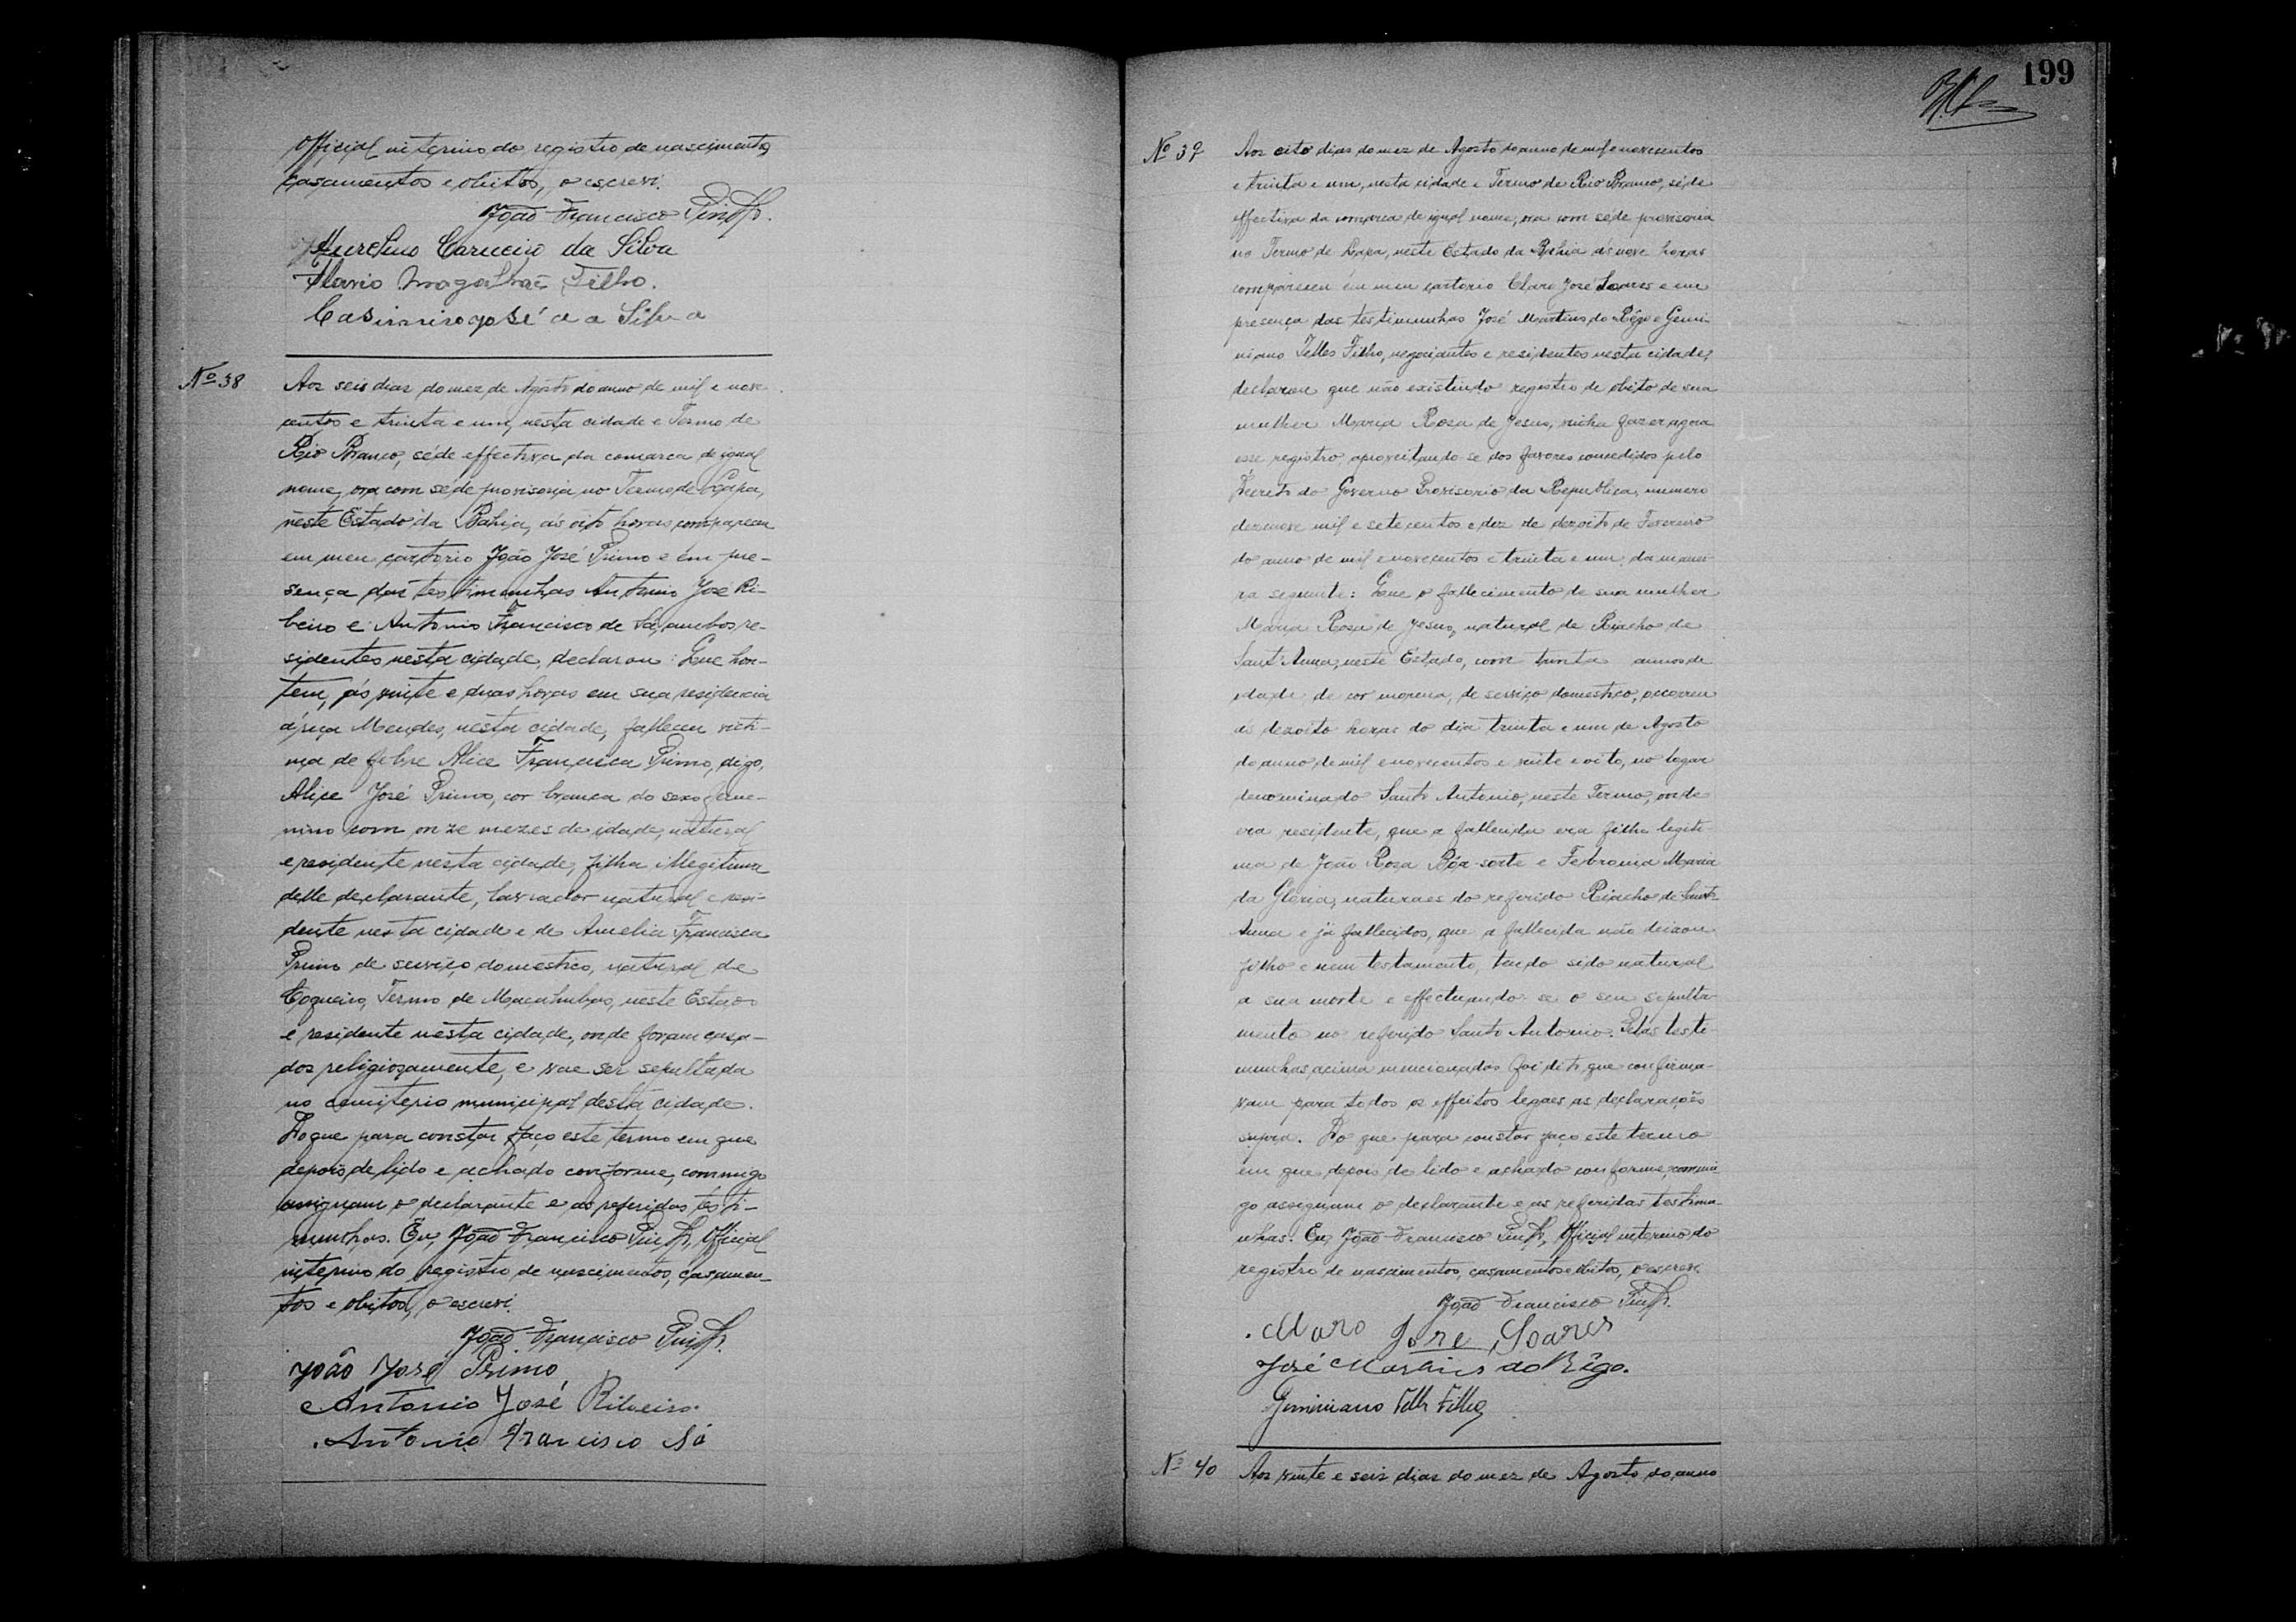 Official interino do registro de nascimentos
casamentos e obitos, o escrevi.
João Francisco
Aurelino Carneiro da Silva
Flavio Magalhães Filho.
Casimiro José da Silva
Nº 38
Aos seis dias do mez de Agosto do anno de mil e nove
centos e trinta e um, nesta cidade e Termo de
Rio Branco, séde effectiva da comarca de igual
nome, ora com séde provisoria no Termo de Lapa,
neste Estado da Bahia, ás oito horas compareceu
em meu cartorio João José Primo e em pre-
sença das testimunhas Antonio José Ri-
beiro e Antonio Francisco de Sá, ambos re-
sidentes nesta cidade, declarou: Que hon-
tem, ás vinte e duas horas em sua residencia
Mendes, nesta cidade, falleceu victi-
ma de febre Alice Francisca Primo, digo,
Alice José Primo, cor branca do sexo feme-
nino com onze mezes de idade, natural
e residente nesta cidade, filha illegitima
delle declarante, lavrador natural e resi-
dente nesta cidade e de Amelia Francisca
Primo de serviço domestico, natural de
Coqueiro, Termo de Macahubas, neste Estado
e residente nesta cidade, onde foram casa-
dos religiosamente, e vae ser sepultada
no cemiterio municipal desta cidade.
Do que para constar faço este termo em que
depois de lido e achado conforme, commigo
assignam o declarante e as referidas testi-
munhas. Eu, João Francisco Official
interino do registro de nascimentos, casamen-
tos e obitos, o escrevi.
João Francisco
João José Primo
Antonio José Ribeiro.
Antonio Francisco Sá
199
Nº 39
Aos oito dias do mez de Agosto do anno de mil e novecentos
e trinta e um, nesta cidade e Termo de Rio Branco, séde
effectiva da comarca de igual nome, ora com séde provisoria
no Termo de Lapa, neste Estado da Bahia ás nove horas
compareceu em meu cartorio Claro José Soares e em
presença das testimunhas José Martins do Rêgo e Gemi-
niano Telles Filho, negociantes e residentes nesta cidade,
declarou que não existindo registro de obito de sua
mulher Maria Rosa de Jesus, vinha fazer agora
esse registro, aproveitando-se dos favores concedidos pelo
Decreto do Governo Provisorio da Republica, numero
dezenove mil e setecentos e dez de dezoito de Fevereiro
do anno de mil e novecentos e trinta e um, da manei-
ra seguinte: Que o fallecimento de sua mulher
Maria Rosa de Jesus, natural de Riacho de
Sant'Anna, neste Estado, com trinta annos de
idade, de cor morena, de serviço domestico, occorreu
ás dezoito horas do dia trinta e um de Agosto
do anno de mil e novecentos e vinte e oito, no logar
denominado Santo Antonio, neste Termo, onde
era residente, que a fallecida era filha legiti-
ma de João Rosa Bôa-sorte e Febronia Maria
da Gloria, naturaes do referido Riacho de Sant'
Anna e já fallecidos, que a fallecida não deixou
filho e nem testamento, tendo sido natural
a sua morte e effectuando-se o seu sepulta-
mento no referido Santo Antonio. Pelas teste-
munhas acima mencionadas foi dito que confirma-
vam para todos os effeitos legaes as declarações
supra. Do que para constar faço este termo
em que depois de lido e achado conforme, commi-
go assignam o declarante e as referidas testimu-
nhas. Eu, João Francisco Official interino do
registro de nascimentos, casamentos e obitos, o escrevi.
João Francisco
Claro José Soares
José Martins do Rêgo.
Geminiano Telles Filho
Nº 40
Aos vinte e seis dias do mez de Agosto do anno